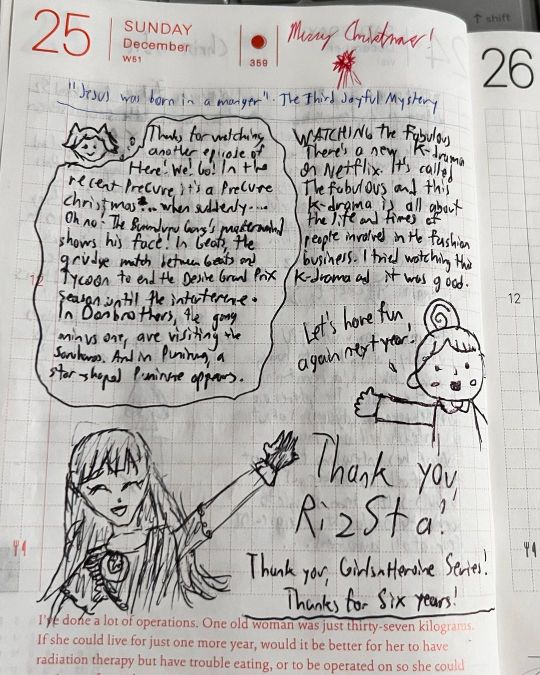 25
SUNDAY
December
W51
359
Merry Christmas!
26
shift
"Jesus was born in a manger". The Third Joyful Mystery
Thanks for watching
another episode of
Here! We! Go! In the
recent PreCure, it's a PreCure
christmas... when suddenly...
Oh no! The Bundoru Gang's mastermind
shows his face! In Geats, the
grudge match between Geats and
Tycoon to end the Desire Grand Prix
season until the interference.
In Donbrothers, the gang
minus one, are visiting the
Sonohara. And in Punirunes, a
star-shaped Punirune appears.
WATCHING the Fabulous
There's a new K-drama
on Netflix. It's called
The fabulous and this
K-drama is all about
the life and times of
people involved in the fashion
business. I tried watching this
K-drama and it was good.
12
12
Let's have fun
again next year!
Thank you,
RizSta!
Thank you, GirlsxHeroine Series!
Thanks for Six years!
I've done a lot of operations. One old woman was just thirty-seven kilograms.
If she could live for just one more year, would it be better for her to have
radiation therapy but have trouble eating, or to be operated on so she could